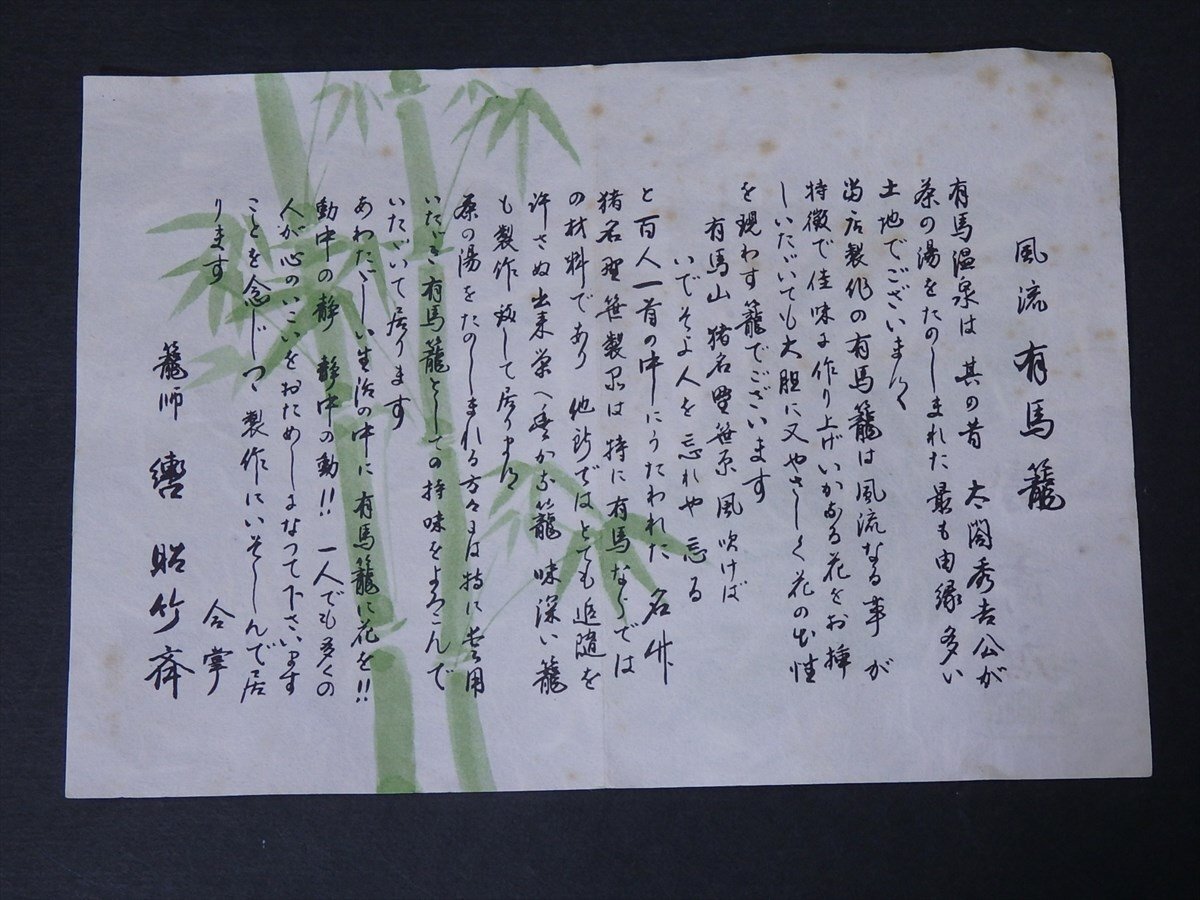 風流 有馬籠
有馬温泉は 其の昔 太閤秀吉公が
茶の湯をたのしまれた最も由縁多い
土地でございます
当店製作の有馬籠は風流なる事が
特徴で佳味に作り上げいかなる花をお挿
しいたゞいても大胆に又やさしく花の本性
を現わす籠でございます
有馬山 猪名野笹原 風吹けば
いでそよ人を忘れや忘る
と百人一首の中にうたわれた 名竹
猪名野笹製品は特に有馬ならでは
の材料であり 他所ではとても追随を
許さぬ出来栄へ豊かな籠 味深い籠
も製作致して居ります
茶の湯をたのしまれる方々には特に愛用
いたゞき有馬籠としての持味をよろこんで
いたゞいて居ります
あわたゞしい生活の中に有馬籠に花を!!
動中の静 静中の動!! 一人でも多くの
人が心のいこいをおためしになつて下さいます
ことを念じつゝ製作にいそしんで居
ります
合掌
籠師 轡 昭竹斎